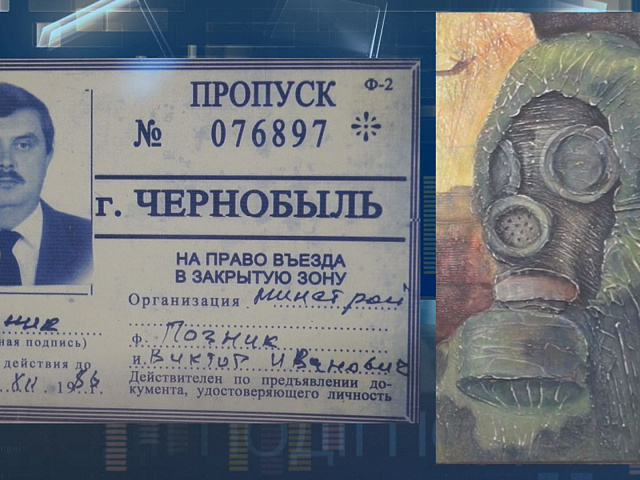 ПРОПУСК Ф-2
№ 076897
г. ЧЕРНОБЫЛЬ
НА ПРАВО ВЪЕЗДА
В ЗАКРЫТУЮ ЗОНУ
Организация Минстрой
ф. Позник
и. Виктор Иванович
Действителен по предъявлении до-
кумента, удостоверяющего личность
ник
ная подпись)
действия до
XII. 19 г.